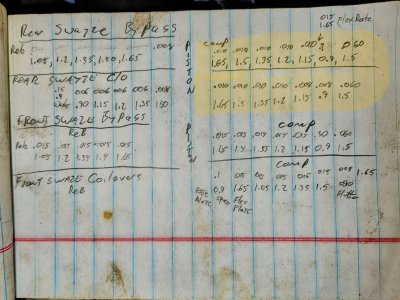 Rear Swayze ByPass
.015
1.65 FlexRate
Reb .008
1.05, 1.2, 1.35, 1.50, 1.65
PISTON
comp
.010 .010 .010 .010 .060
1.65, 1.5, 1.35, 1.2, 1.15, 0.9, 1.5
REAR SWAYZE C/O
.15 .008 .006 .006 .006 .008
.9
.90 1.15 1.2 1.35 1.50
.010 .010 .010 .010 .010 .008 .060
1.65 1.5 1.35 1.2 1.15 .9 1.5
FRONT SWAZE ByPass
ReB
Reb .015 .015 .015 .015 .015
1.05 1.2 1.35 1.5 1.65
PISTON
comp
.015 .015 .015 .015 .015 .30 .060
1.65 1.5 1.35 1.2 1.15 0.9 1.5
FRONT SWAZE Coilovers
ReB
comp
.1 .015 .015 .015 .015 .015 1.65
0.9 1.65 1.05 1.2 1.35 1.5 .090
Flex
Plate